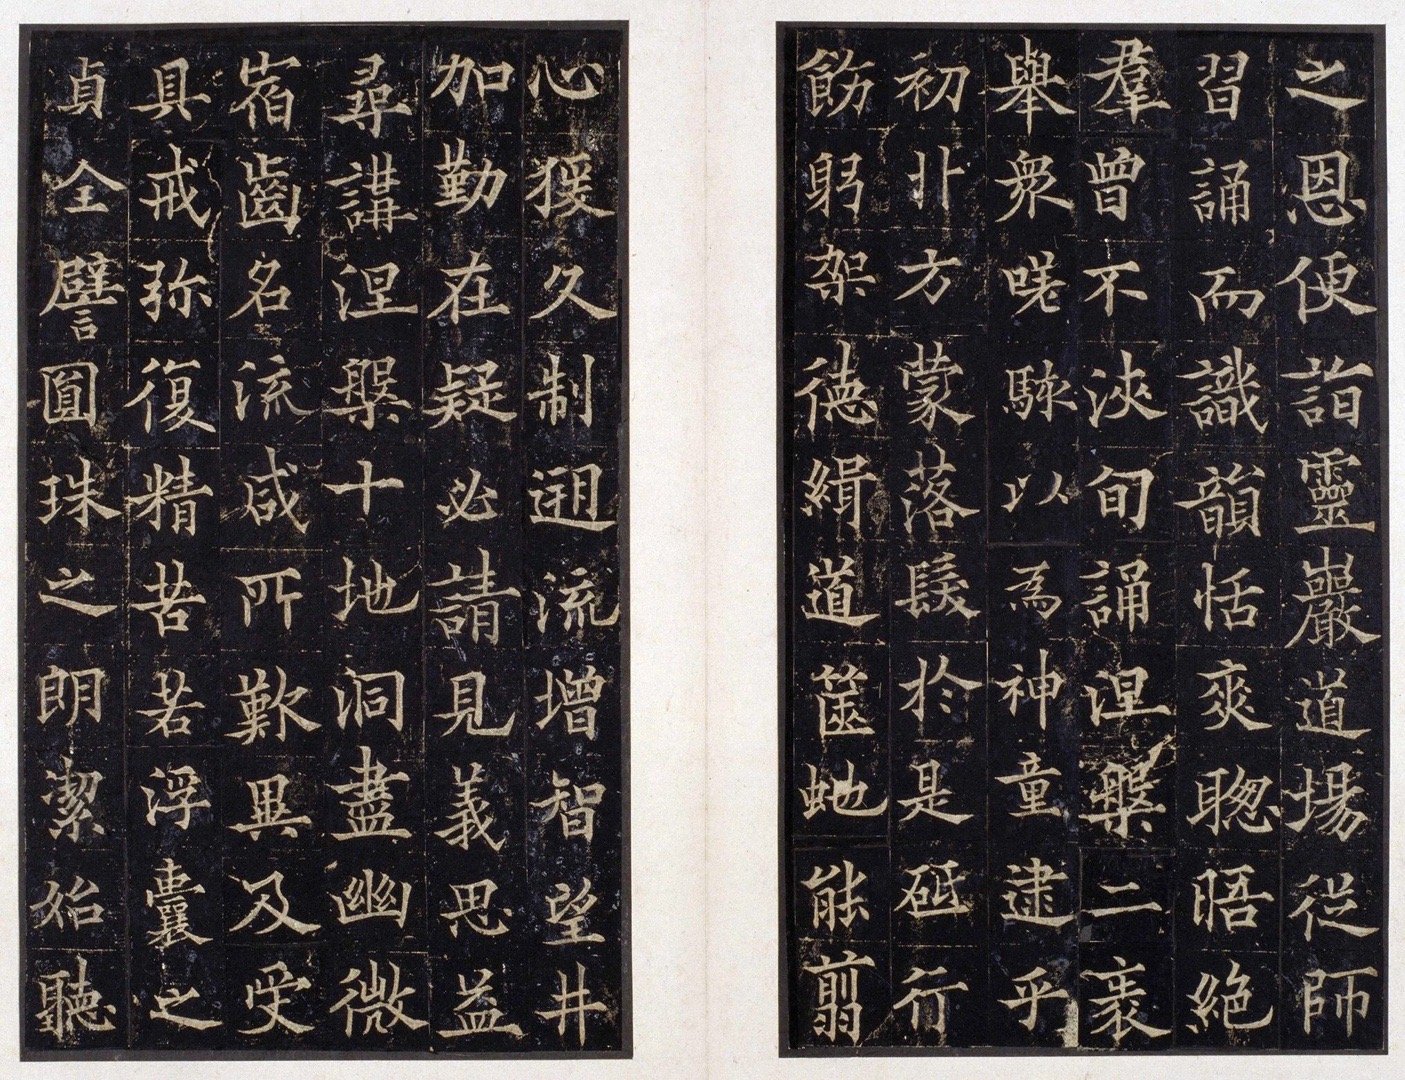 之恩便詣靈巖道場從師
習誦而識韻恬爽聦晤絕
羣曾不浹旬誦涅槃二袠
舉眾嗟駭以為神童逮乎
初丱方蒙落髮於是砥行
飭躬架德緝道篋虵能翦
心猨久制迴流增智望井
加勤在疑必請見義思益
尋講涅槃十地洞盡幽微
宿齒名流咸所歎異及受
具戒弥復精苦若浮囊之
貞全譬圓珠之朗潔始聽